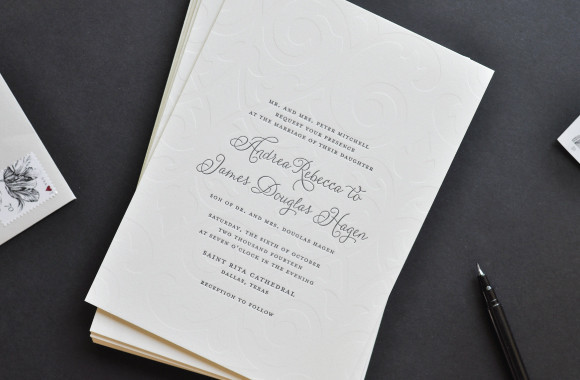 MR. AND MRS. PETER MITCHELL
REQUEST YOUR PRESENCE
AT THE MARRIAGE OF THEIR DAUGHTER
Andrea Rebecca to
James Douglas Hagen
SON OF DR. AND MRS. DOUGLAS HAGEN
SATURDAY, THE SIXTH OF OCTOBER
TWO THOUSAND FOURTEEN
AT SEVEN O'CLOCK IN THE EVENING
SAINT RITA CATHEDRAL
DALLAS, TEXAS
RECEPTION TO FOLLOW